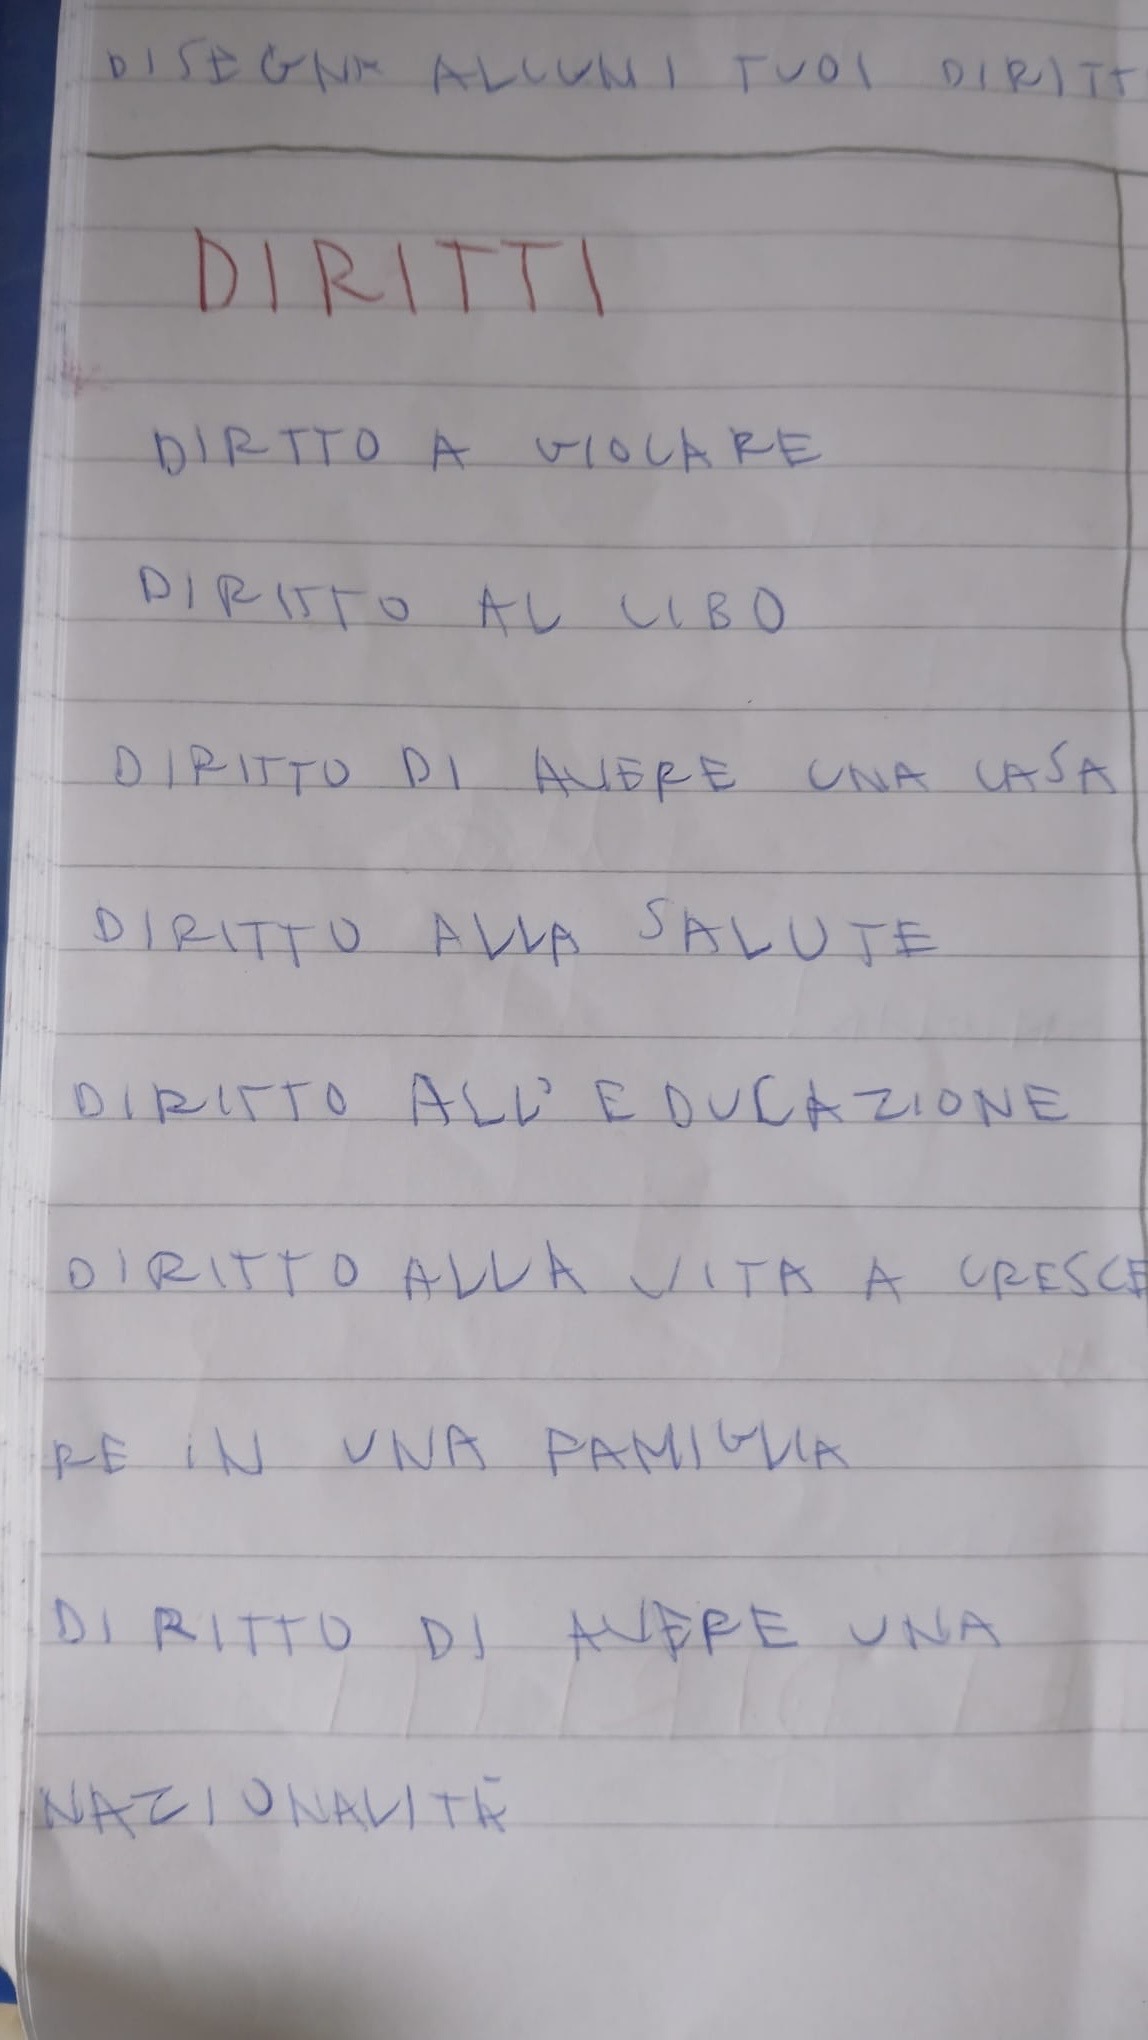 DISEGNA ALCUNI TUOI DIRITT
DIRITTI
DIRTTO A GIOCARE
DIRITTO AL CIBO
DIRITTO DI AVERE UNA CASA
DIRITTO ALLA SALUTE
DIRITTO ALL'EDUCAZIONE
DIRITTO ALLA VITA A CRESCE
RE IN UNA FAMIGLIA
DIRITTO DI AVERE UNA
NAZIONALITÀ